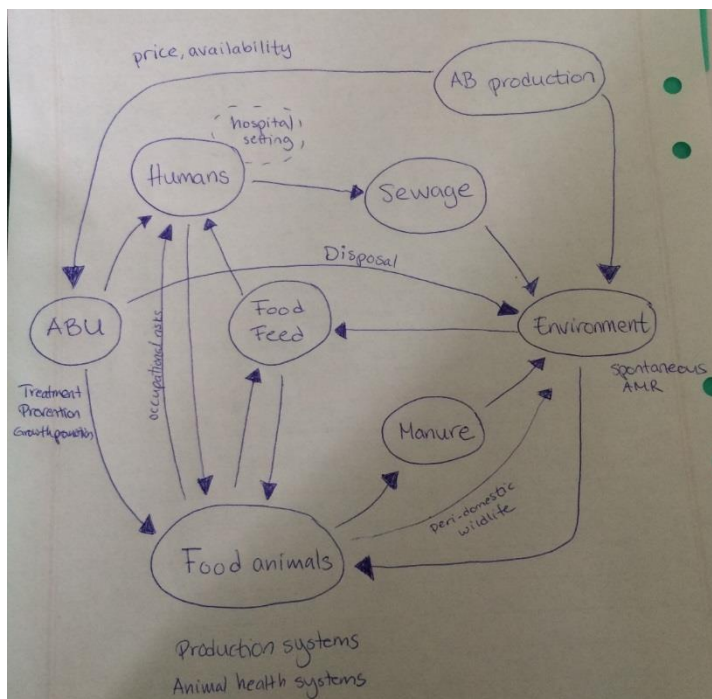 price, availability
AB production
hospital
setting
Humans
Sewage
Disposal
ABU
Food
Feed
Environment
spontaneous
AMR
Treatment
Prevention
Growth promotion
occupational risks
Manure
peri-domestic
wildlife
Food animals
Production systems
Animal health systems